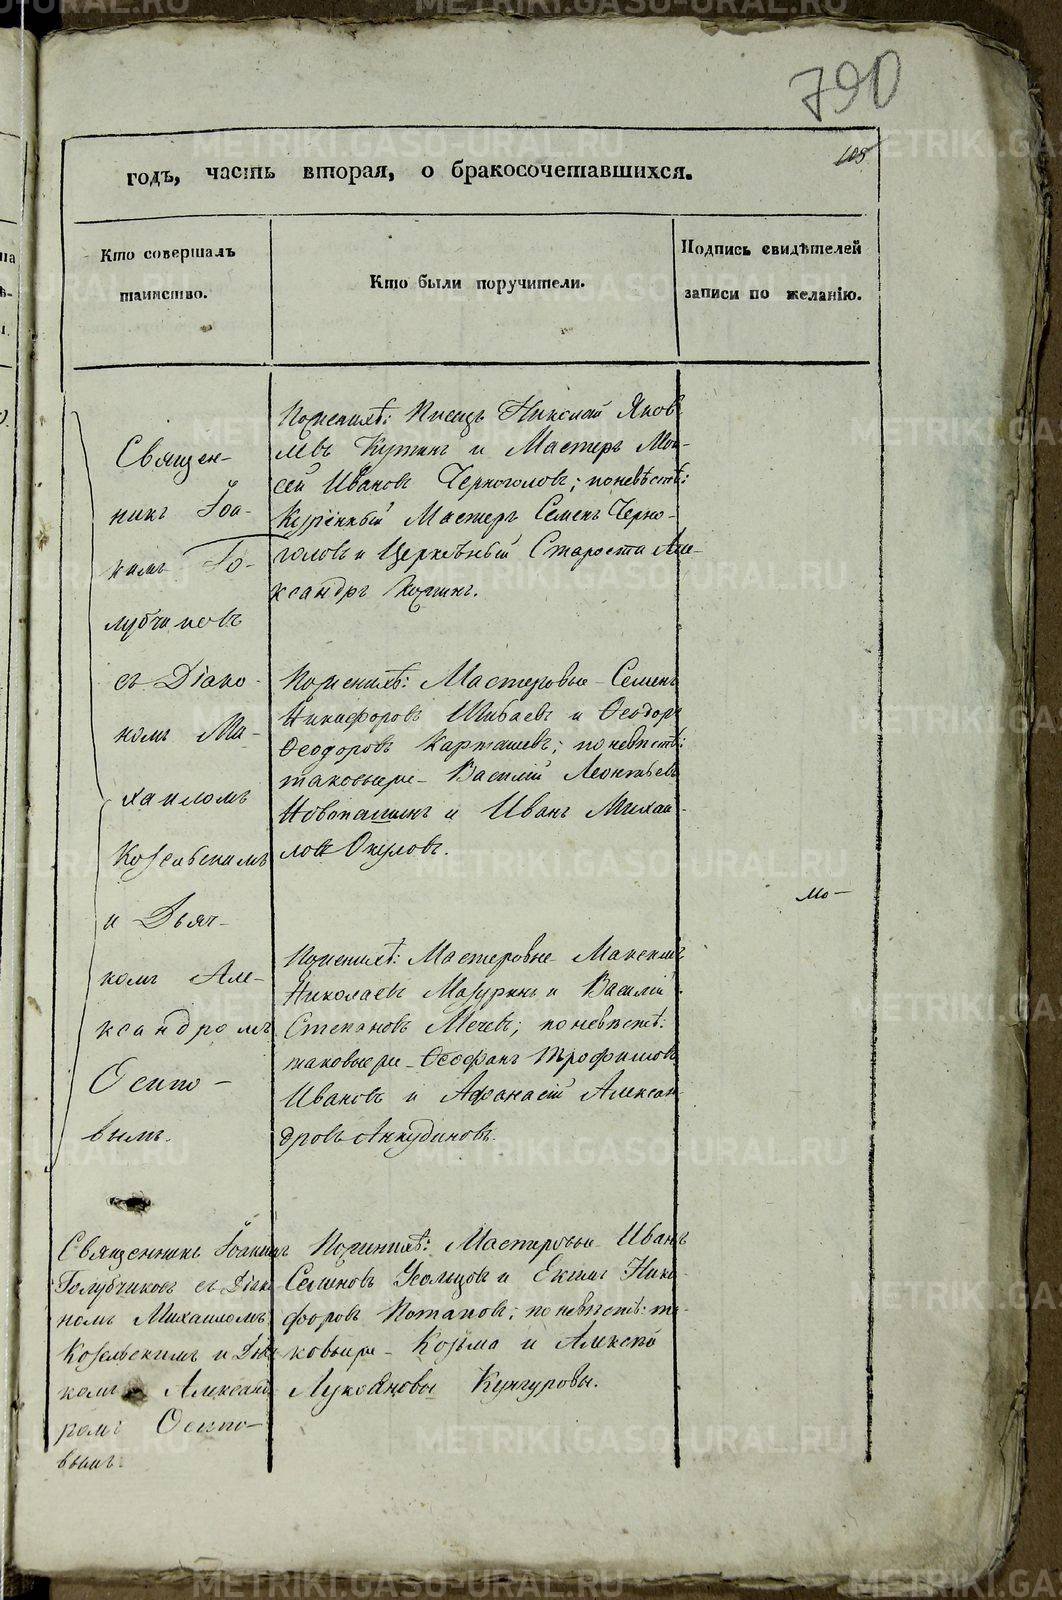 790
105
годъ, часть вторая, о бракосочетавшихся.
Кто совершалъ
таинство.
Кто были поручители.
Подпись свидѣтелей
записи по желанію.
Священ-
никъ Іоа-
кимъ Го-
лубчиковъ
съ Діако-
номъ Ми-
хаиломъ
Козельскимъ
и Дьяч-
комъ Але-
ксандромъ
Осипо-
вымъ.
По женихѣ: Писецъ Николай Яков
левъ и Мастеръ Мои-
сей Ивановъ Черноголовъ; по невѣстѣ:
Куренный Мастеръ Семенъ Черно-
головъ и Церковный Староста Але-
ксандръ
По женихѣ: Мастеровые Семенъ
Никифоровъ Шибаевъ и Ѳеодоръ
Ѳеодоровъ Карташевъ; по невѣстѣ:
таковые же Василій Леонтьевъ
Новопашинъ и Иванъ Михаи
ловъ Окуловъ.
По женихѣ: Мастеровые Максимъ
Николаевъ Мазуринъ и Василій
Степановъ Мечевъ; по невѣстѣ:
таковые же Ѳеофанъ Трофимовъ
Ивановъ и Афанасій Алексан
дровъ Анкудиновъ.
мо
Священникъ Іоакимъ
Голубчиковъ съ Діако
номъ Михаиломъ
Козельскимъ и Дьяч
комъ Александ
ромъ Осипо-
вымъ.
По женихѣ: Мастеровые Иванъ
Семеновъ Усольцовъ и Екимъ Ники-
форовъ Потаповъ; по невѣстѣ: та-
ковые же Козьма и Алексѣй
Лукояновы Кунгуровы.
METRIKI.GASO-URAL.RU